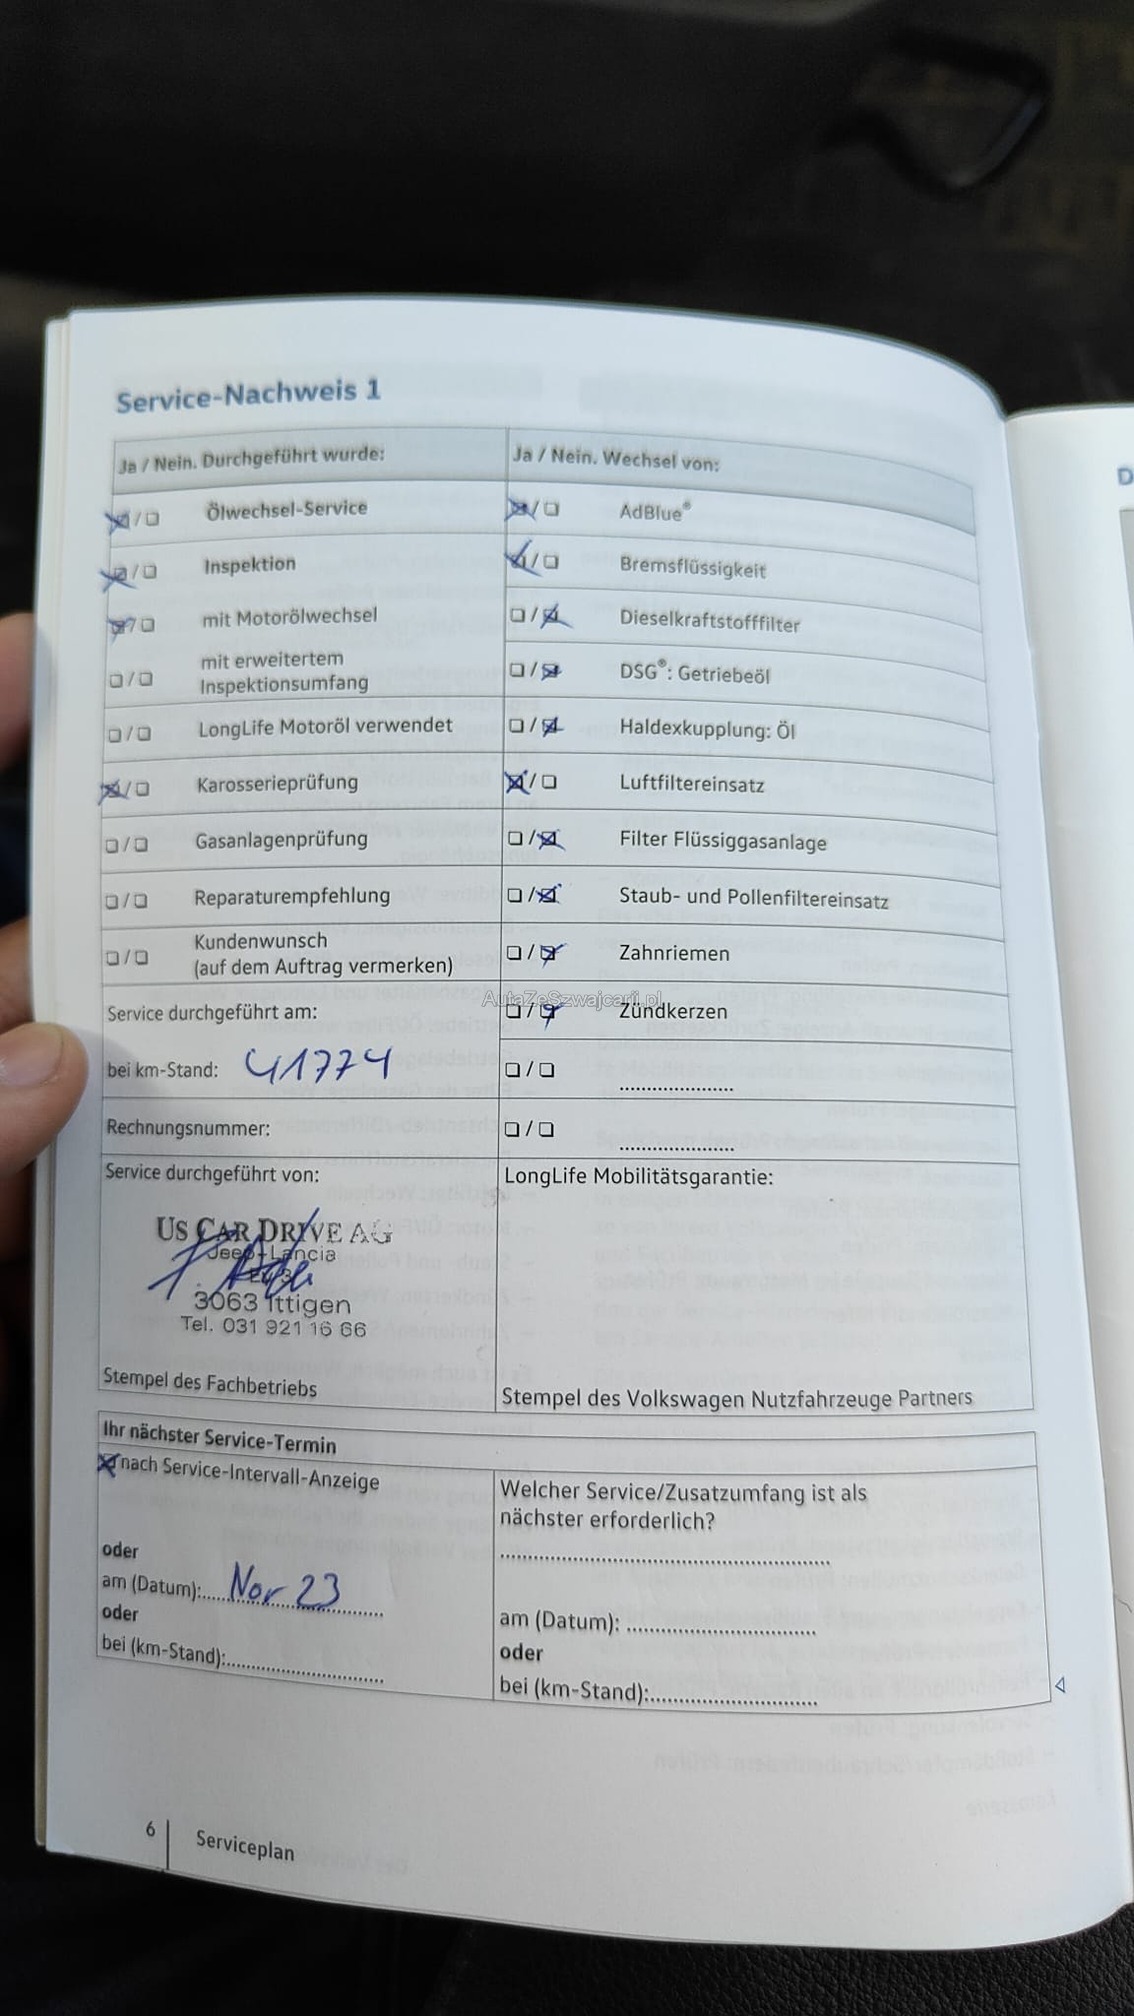 Service-Nachweis 1
Ja / Nein. Durchgeführt wurde:
Ja / Nein. Wechsel von:
Ölwechsel-Service
AdBlue®
Inspektion
Bremsflüssigkeit
mit Motorölwechsel
Dieselkraftstofffilter
mit erweitertem
Inspektionsumfang
DSG®: Getriebeöl
LongLife Motoröl verwendet
Haldexkupplung: Öl
Karosserieprüfung
Luftfiltereinsatz
Gasanlagenprüfung
Filter Flüssiggasanlage
Reparaturempfehlung
Staub- und Pollenfiltereinsatz
Kundenwunsch
(auf dem Auftrag vermerken)
Zahnriemen
AutaZeSzwajcarii.pl
Service durchgeführt am:
Zündkerzen
bei km-Stand: 41774
Rechnungsnummer:
Service durchgeführt von:
LongLife Mobilitätsgarantie:
US CAR DRIVE AG
Jeep-Lancia
3063 Ittigen
Tel. 031 921 16 66
Stempel des Fachbetriebs
Stempel des Volkswagen Nutzfahrzeuge Partners
Ihr nächster Service-Termin
nach Service-Intervall-Anzeige
Welcher Service/Zusatzumfang ist als
nächster erforderlich?
oder
am (Datum): Nov 23
am (Datum):
oder
oder
bei (km-Stand):
bei (km-Stand):
6
Serviceplan
D